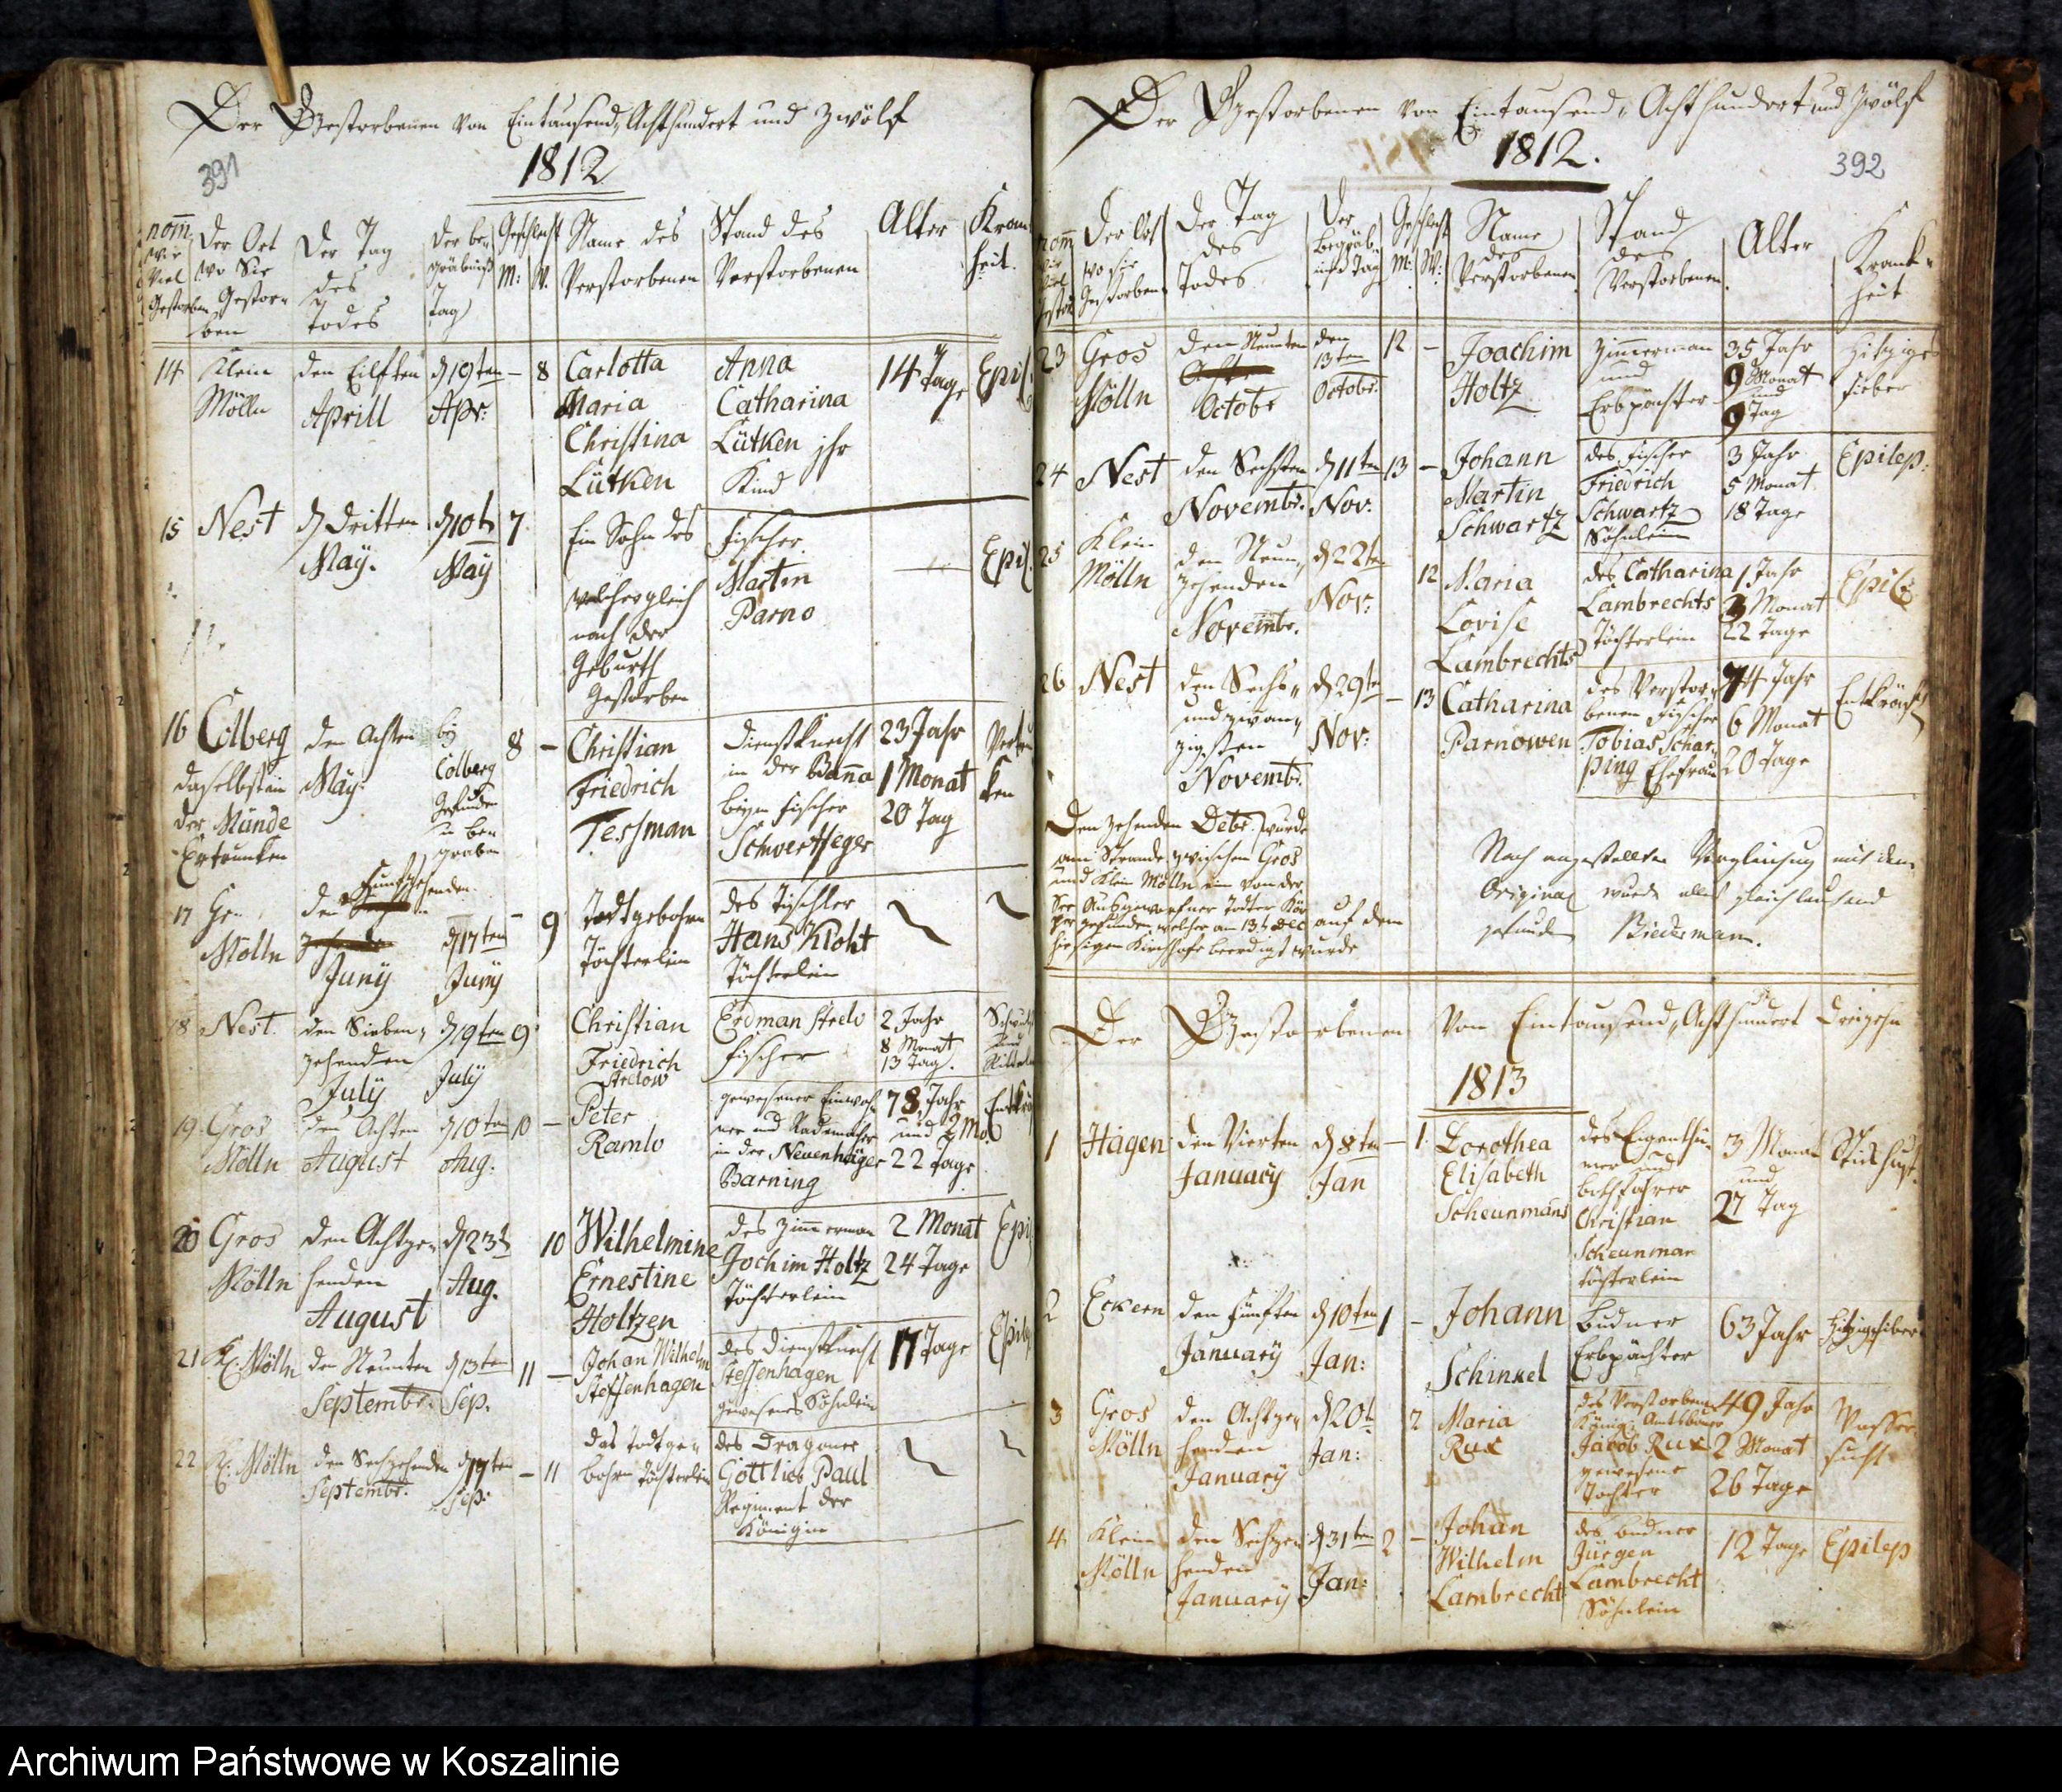 Der Gestorbenen von Eintausend, Achthundert und zwölf
391
1812
nom̄
wie
viel
Gestorben
Der Ort
wo Sie
Gestor=
ben
Der Tag
des
Todes
Der be=
gräbniß
Tag
Geschlecht
M: W.
Name des
Verstorbenen
Stand des
Verstorbenen
Alter
Krank
heit.
14 Klein
Mölln
den Eilften
Aprill
d 19ten
Apr:
– 8
Carlotta
Maria
Christina
Lütken
Anna
Catharina
Lütken ihr
Kind
14 Tage
Epil.
15 Nest
d dritten
May.
d 10t
May
7
Ein Sohn des
welcher gleich
nach der
Geburth
Gestorben
Fischer
Martin
Parno
—
Epil.
16 Colberg
daselbst in
der Münde
Ertrunken
den Achten
May.
Colberg
Gefunden
graben
8 –
Christian
Friedrich
Tessman
Dienstknecht
in der Banna
beym Fischer
Schwertfeger
23 Jahr
1 Monat
20 Tag
ken
17 Gr.
Mölln
den Funfzehenden
Juny
d 17ten
Juny
– 9
Todtgebohrn
Töchterlein
des Tischler
Hans Kloht
Töchterlein
18 Nest.
den Sieben,
zehenden
July
d 19ten
July
9
Christian
Friedrich
Strelow
Erdman Strelo
Fischer
2 Jahr
8 Monat
13 Tag.
19. Gros
Mölln
den Achten
August
d 10ten
Aug.
10 –
Peter
Ramlo
gewesener Einwoh
ner und Rademacher
in der Neuenhäger
Barning
78, Jahr
und 2 Mo.
22 Tage
20 Gros
Mölln
den Achtze,
henden
August
d 23t
Aug.
10
Wilhelmine
Ernestine
Holtzen
des Zimmerman
Jochim Holtz
Töchterlein
2 Monat
24 Tage
Epi
21 K. Mölln
den Neunten
Septembr.
d 13ten
Sep.
11 –
Johan Wilhelm
Steffenhagen
des Dienstknecht
Steffenhagen
gewesenes Söhnlein
17 Tage
Epilep
22 K. Mölln
den Sechzehenden
Septembr.
d 19ten
Sep:
– 11
das todtge=
bohrne Töchterlein
des Dragoner
Gottlieb Paul
Regiment der
Königin
Der Gestorbenen von Eintausend, Achthundert und zwölf
1812.
392
nom̄
wie
viel
Gestor
Der Ort
wo sie
Gestorben
Der Tag
des
Todes
Der
Begräb
niß Tag
Geschlecht
M: W:
Name
des
Verstorbenen
Stand
des
Verstorbenen
Alter
Krank=
heit
23 Gros
Mölln
den Neunten
Octobr
den
13ten
Octobr.
12 –
Joachim
Holtz
Zimmerman
und
Erbpächter
35 Jahr
9 Monat
und
9 Tag
Hitziges
fieber
24 Nest
den Sechsten
Novembr.
d 11ten
Nov:
13 –
Johann
Martin
Schwartz
des Fischer
Friedrich
Schwartz
Söhnlein
3 Jahr
5 Monat
18 Tage
Epilep.
25 Klein
Mölln
den Neun,
zehenden
Novembr.
d 22ten
Nov:
12
Maria
Lovise
Lambrechts
des Catharina
Lambrechts
Töchterlein
1 Jahr
3 Monat
22 Tage
Epilep
26 Nest
den Sechs,,
und zwan,,
zigsten
Novemb.
d 29ten
Nov:
– 13
Catharina
Parnowen
des Verstor,
benen Fischer
Tobias Schar,
ping Ehefrau
74 Jahr
6 Monat
20 Tage
Entkräft
Den zehenden Debr. wurde
am Strande zwischen Gros
und Klein Mölln ein von der
See Ausgeworfner Todter Kör
per gefunden, welcher am 13t Dec auf dem
hiesigen Kirchhofe beerdigt wurde
Nach angestellter Vergleichung mit dem
Original wurde alles gleichlautend
gefunden Biederman.
Der Gestorbenen Von Eintausend, Achthundert Dreizehn
1813
1 Hagen
den Vierten
January
d 8ten
Jan
– 1.
Dorothea
Elisabeth
Scheunmans
des Eigenthü=
mer und
bothfahrer
Christian
Scheunman
töchterlein
3 Monat
und
27 Tag
Stickhust.
2 Eckern
den Fünften
January
d 10ten
Jan:
1 –
Johann
Schinkel
Büdner
Erbpächter
63 Jahr
Hitzigfiber
3 Gros
Mölln
den Achtze,
henden
January
d 20t
Jan:
2
Maria
Rux
des Verstorbenen
König: Amtsbauer
Jacob Rux
gewesene
Tochter
49 Jahr
2 Monat
26 Tage
Wasser
sucht
4 Klein
Mölln
den Sechze,
henden
January
d 31ten
Jan:
2 –
Johan
Wilhelm
Lambrecht
des Büdner
Jürgen
Lambrecht
Söhnlein
12 Tage
Epilep
Archiwum Państwowe w Koszalinie